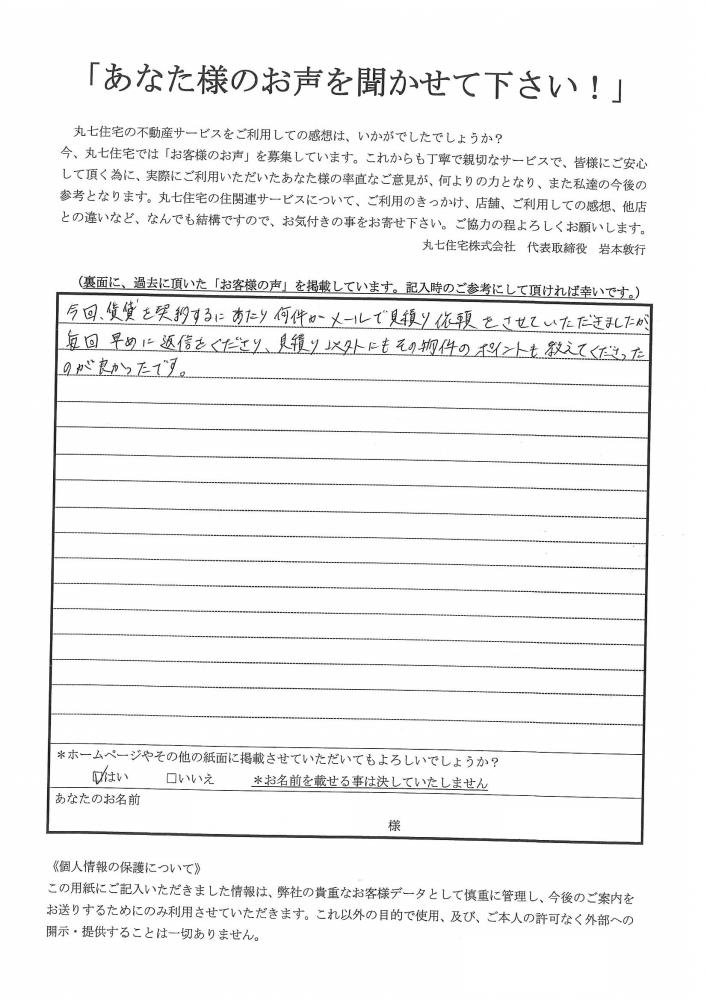 「あなた様のお声を聞かせて下さい！」
丸七住宅の不動産サービスをご利用しての感想は、いかがでしたでしょうか？
今、丸七住宅では「お客様のお声」を募集しています。これからも丁寧で親切なサービスで、皆様にご安心
して頂く為に、実際にご利用いただいたあなた様の率直なご意見が、何よりの力となり、また私達の今後の
参考となります。丸七住宅の住関連サービスについて、ご利用のきっかけ、店舗、ご利用しての感想、他店
との違いなど、なんでも結構ですので、お気付きの事をお寄せ下さい。ご協力の程よろしくお願いします。
丸七住宅株式会社　代表取締役　岩本敦行
（裏面に、過去に頂いた「お客様の声」を掲載しています。記入時のご参考にして頂ければ幸いです。）
今回、賃貸を契約するにあたり何件かメールで見積り依頼をさせていただきましたが、
毎回早めに返信をくださり、見積り以外にもその物件のポイントも教えてくださった
のが良かったです。
＊ホームページやその他の紙面に掲載させていただいてもよろしいでしょうか？
☑はい　□いいえ　＊お名前を載せる事は決していたしません
あなたのお名前
様
《個人情報の保護について》
この用紙にご記入いただきました情報は、弊社の貴重なお客様データとして慎重に管理し、今後のご案内を
お送りするためにのみ利用させていただきます。これ以外の目的で使用、及び、ご本人の許可なく外部への
開示・提供することは一切ありません。